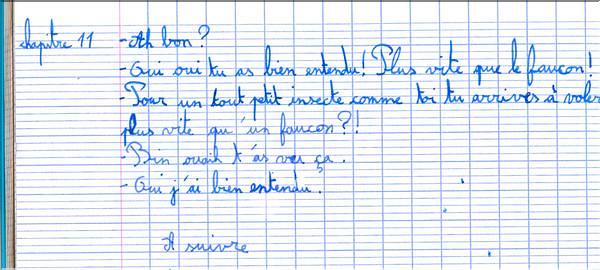 chapitre 11 - Ah bon?
- Oui oui tu as bien entendu! Plus vite que le faucon!
- Pour un tout petit insecte comme toi tu arrives à voler
plus vite qu'un faucon?!
- Bin ouaih t'as vu ça.
- Oui j'ai bien entendu.
A suivre